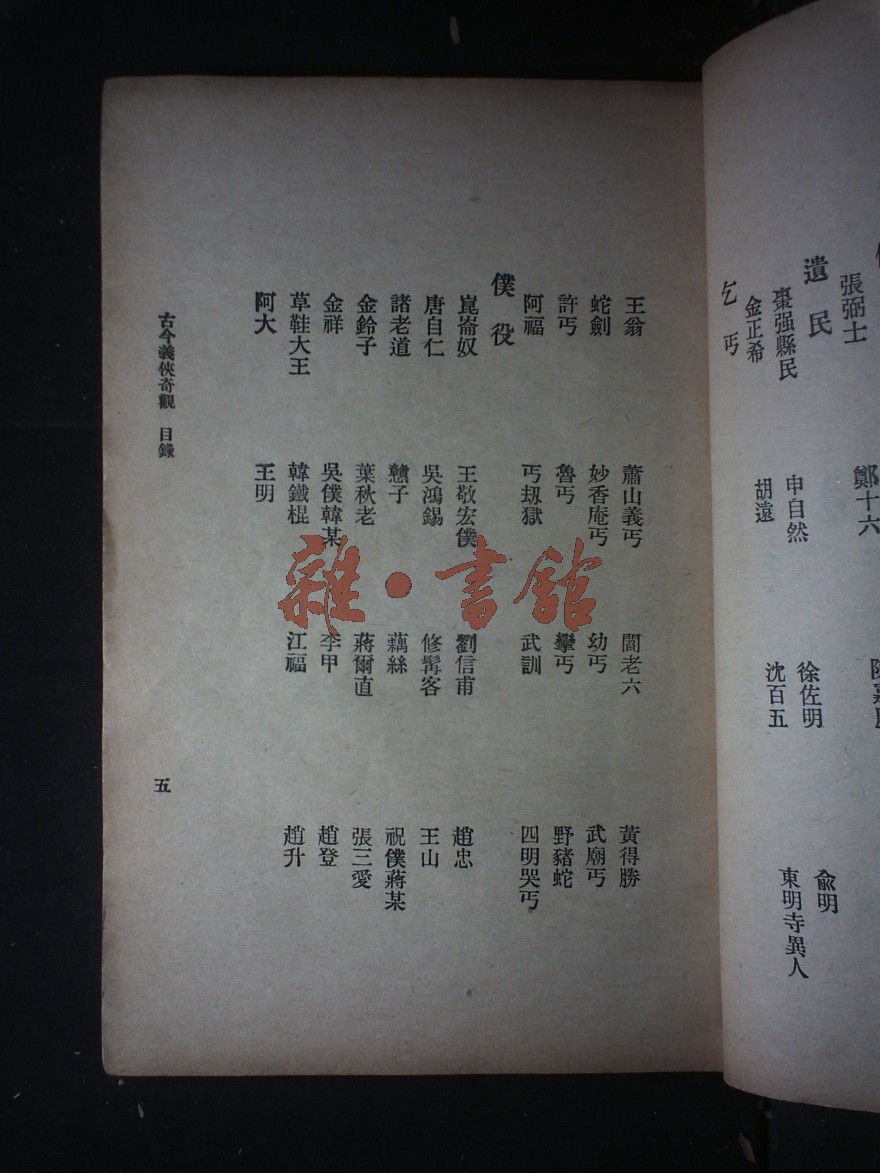 張弼士 鄭十六
遺民
棗强縣民 申自然 徐佐明 兪明
金正希 胡遠 沈百五 東明寺異人
乞丐
王翁 蕭山義丐 閻老六 黃得勝
蛇劍 妙香庵丐 幼丐 武廟丐
許丐 魯丐 攣丐 野豬蛇
阿福 丐刼獄 武訓 四明哭丐
僕役
崑崙奴 王敬宏僕 劉信甫 趙忠
唐自仁 吳鴻錫 修髯客 王山
諸老道 戇子 藕絲 祝僕蔣某
金鈴子 葉秋老 蔣爾直 張三愛
金祥 吳僕韓某 李甲 趙登
草鞋大王 韓鐵棍 江福 趙升
阿大 王明
古今義俠奇觀 目錄 五
雜·書館